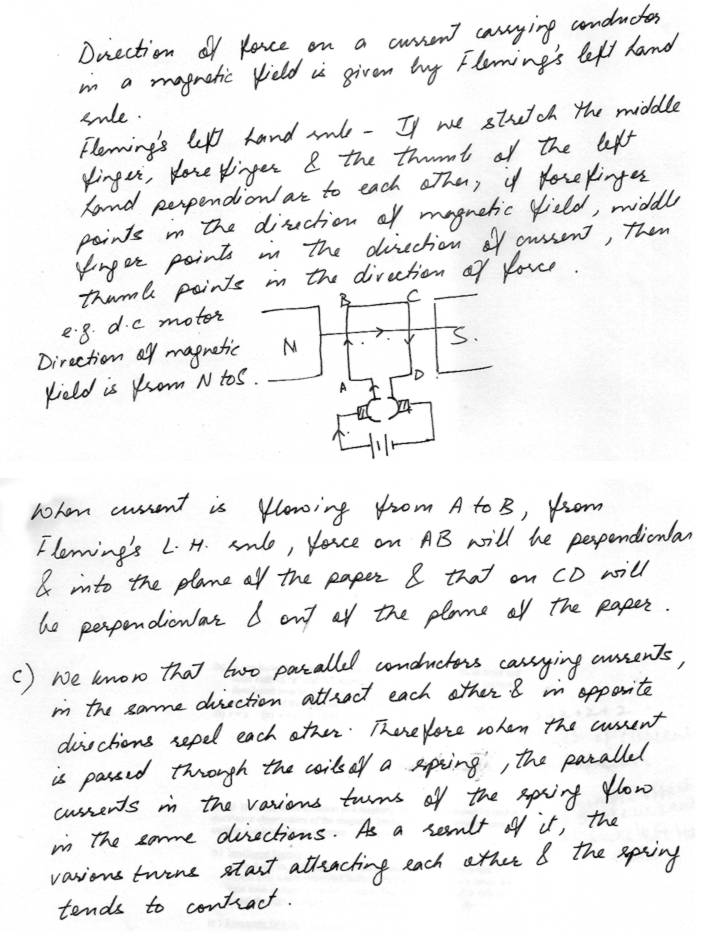 Direction of force on a current carrying conductor
in a magnetic field is given by Fleming's left hand
rule.
Fleming's left hand rule - If we stretch the middle
finger, fore finger & the thumb of the left
hand perpendicular to each other, if forefinger
points in the direction of magnetic field, middle
finger points in the direction of current, then
thumb points in the direction of force.
e.g. d.c motor
Direction of magnetic
field is from N to S.
B C
N S.
A D
When current is flowing from A to B, from
Fleming's L.H. rule, force on AB will be perpendicular
& into the plane of the paper & that on CD will
be perpendicular & out of the plane of the paper.
c) We know that two parallel conductors carrying currents,
in the same direction attract each other & in opposite
directions repel each other. Therefore when the current
is passed through the coils of a spring, the parallel
currents in the various turns of the spring flow
in the same directions. As a result of it, the
various turns start attracting each other & the spring
tends to contract.